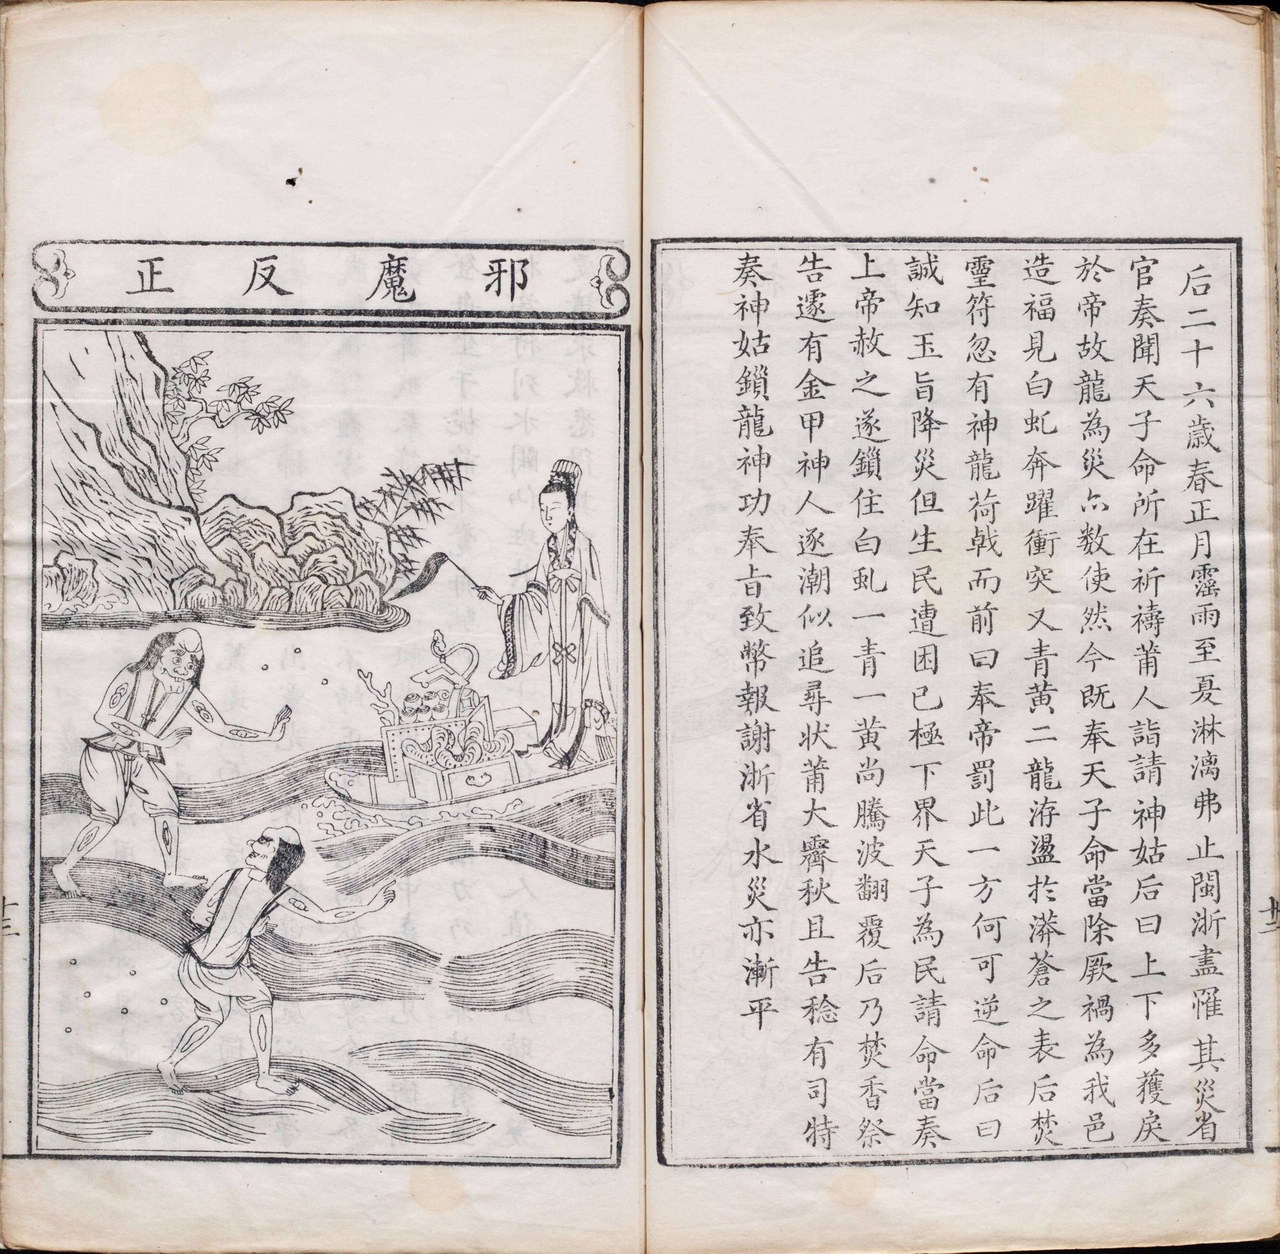 后二十六歲春正月霪雨至夏淋漓弗止閩浙盡罹其災省
官奏聞天子命所在祈禱莆人詣請神姑后曰上下多獲戾
於帝故龍為災亦數使然今既奉天子命當除厥禍為我邑
造福見白虬奔躍衝突又青黃二龍洊盪於漭蒼之表后焚
靈符忽有神龍荷戟而前曰奉帝罰此一方何可逆命后曰
誠知玉旨降災但生民遭困已極下界天子為民請命當奏
上帝赦之遂鎖住白虬一青一黃尚騰波翻覆后乃焚香祭
告遽有金甲神人逐潮似追尋狀莆大霽秋且告稔有司特
奏神姑鎖龍神功奉旨致幣報謝浙省水災亦漸平
邪魔反正